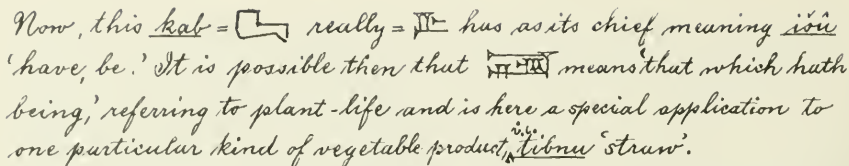 Now, this kab = really = has as its chief meaning išû
'have, be.' It is possible then that means 'that which hath
being,' referring to plant-life and is here a special application to
one particular kind of vegetable product, i.e. tibnu 'straw'.